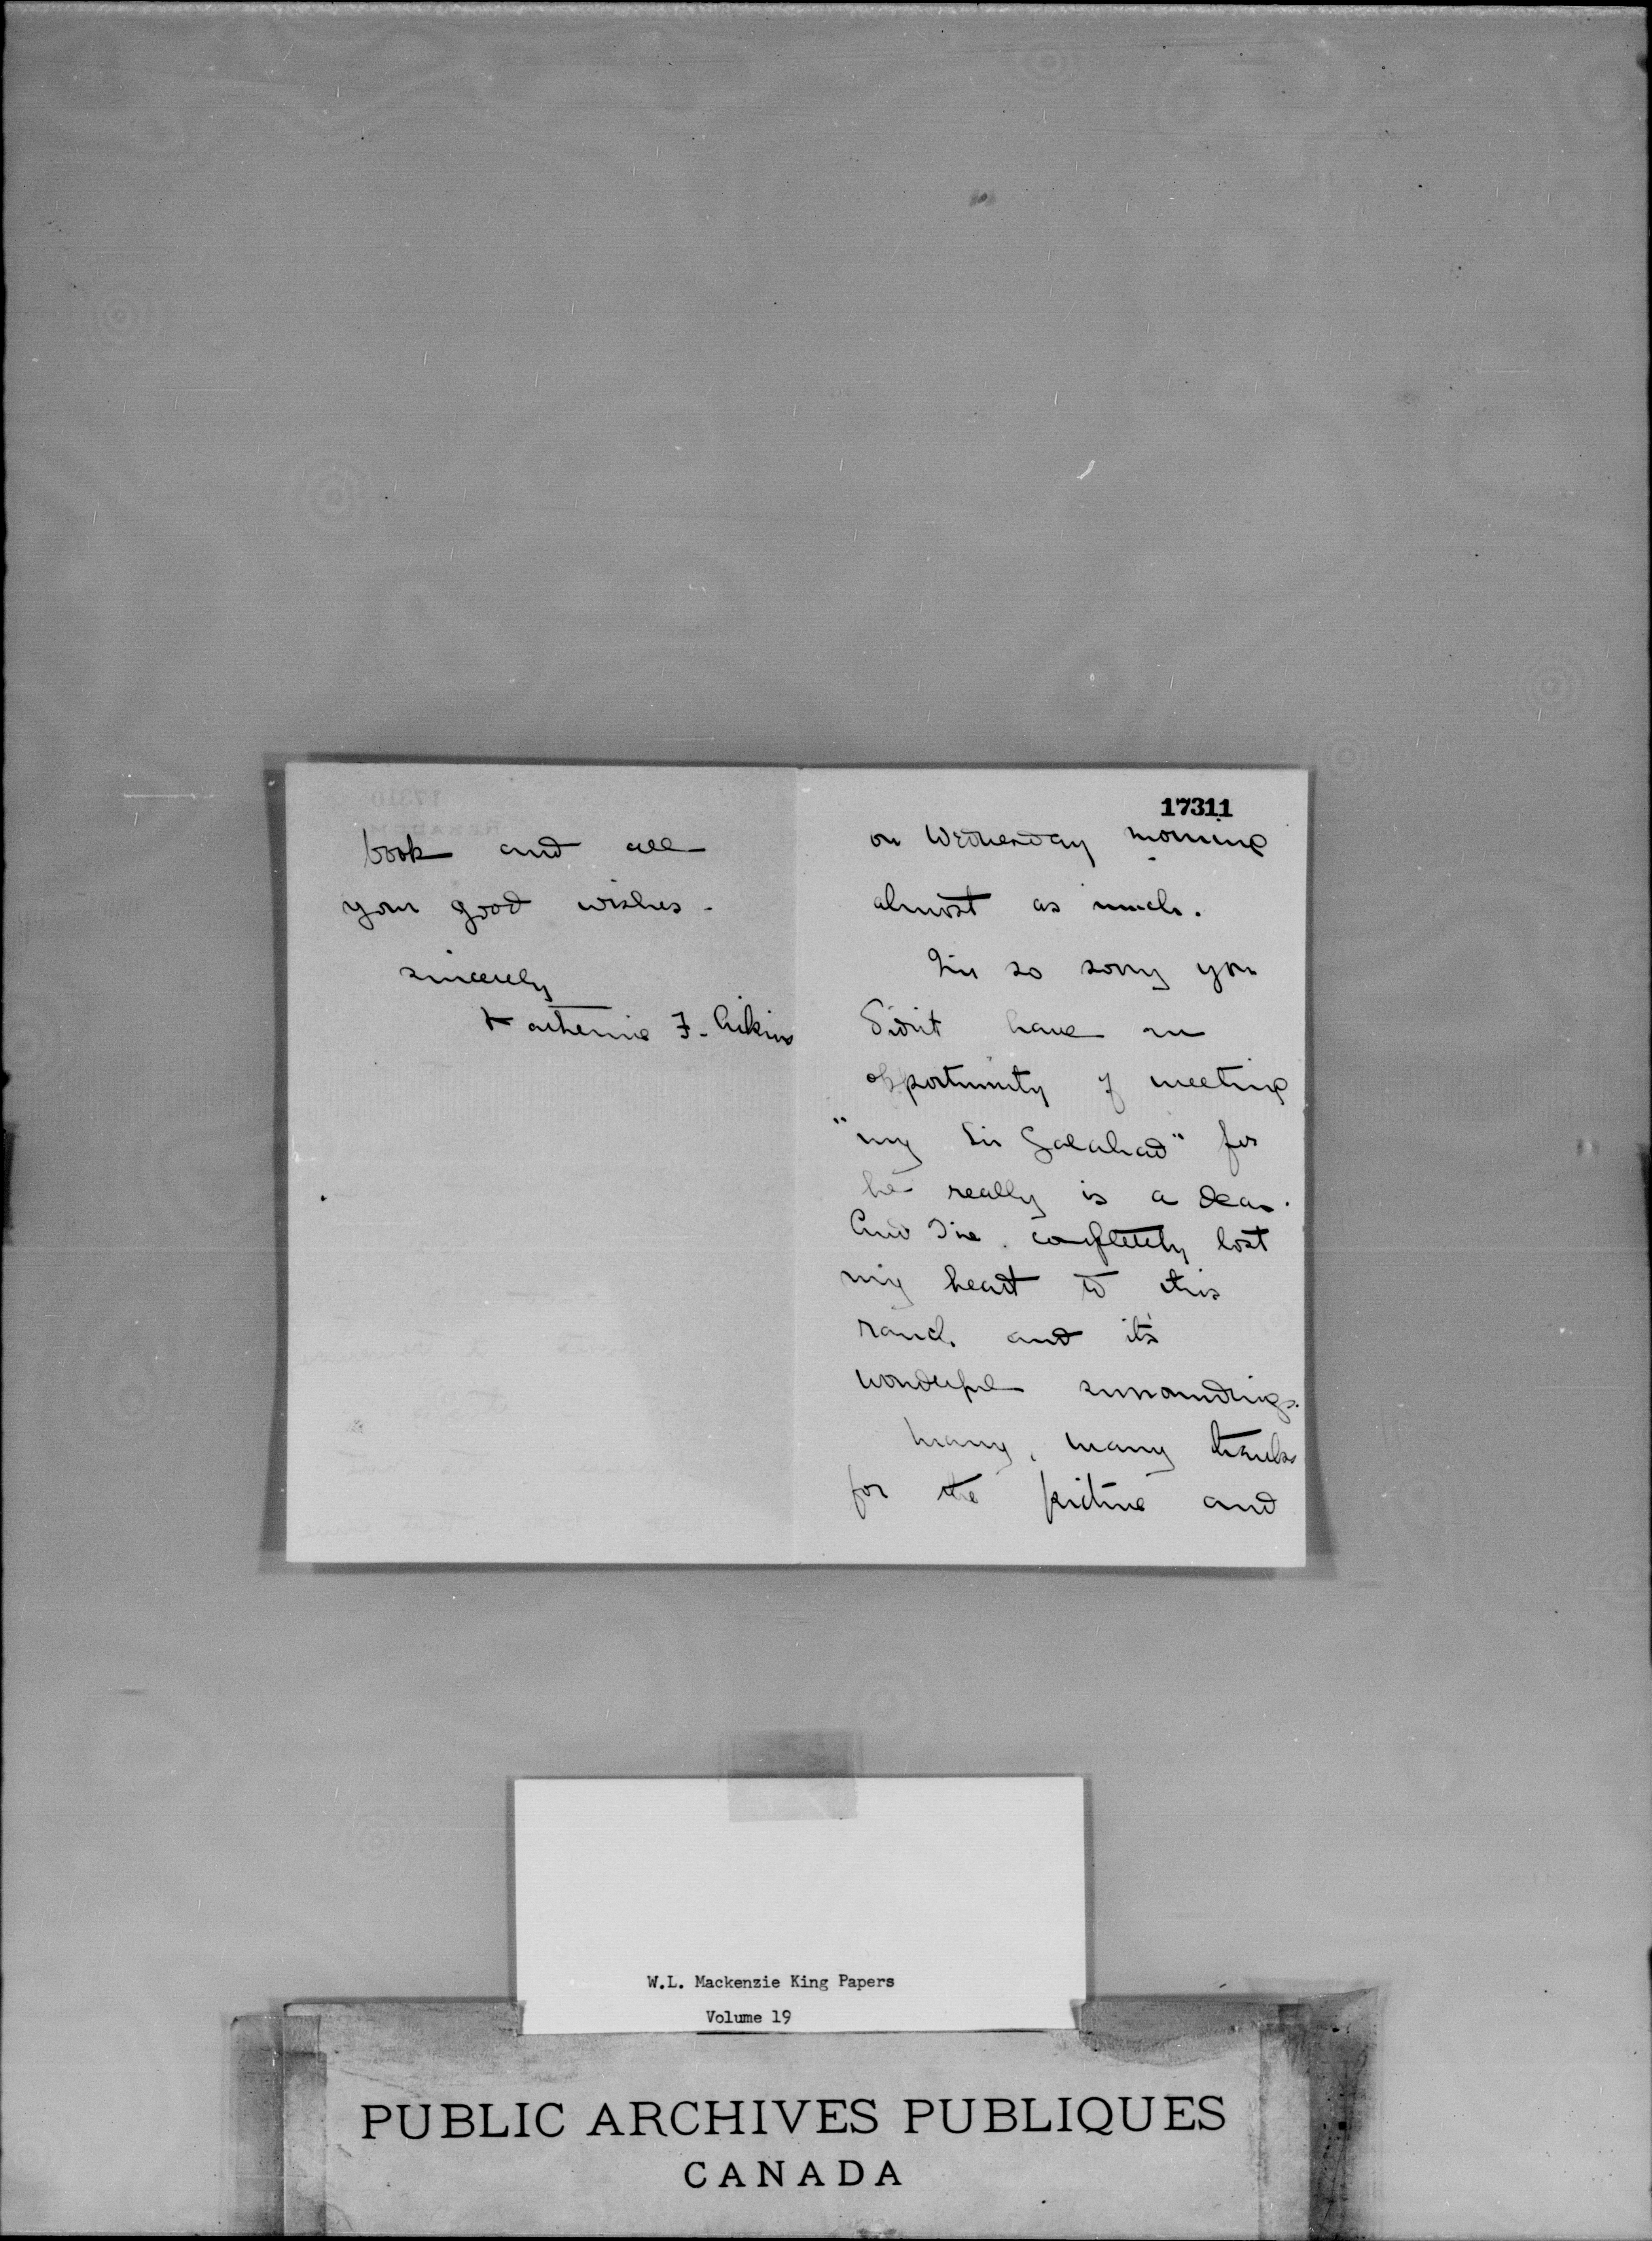 17311
on Wednesday morning
almost as much.
I'm so sorry you
didn't have an
opportunity of meeting
"my Sir Galahad" for
he really is a dear.
And I've completely lost
my heart to this
ranch and it's
wonderful surroundings.
Many, many thanks
for the picture and
book and all
your good wishes.
sincerely
Katherine F. Aikins
W.L. Mackenzie King Papers
Volume 19
PUBLIC ARCHIVES PUBLIQUES
CANADA